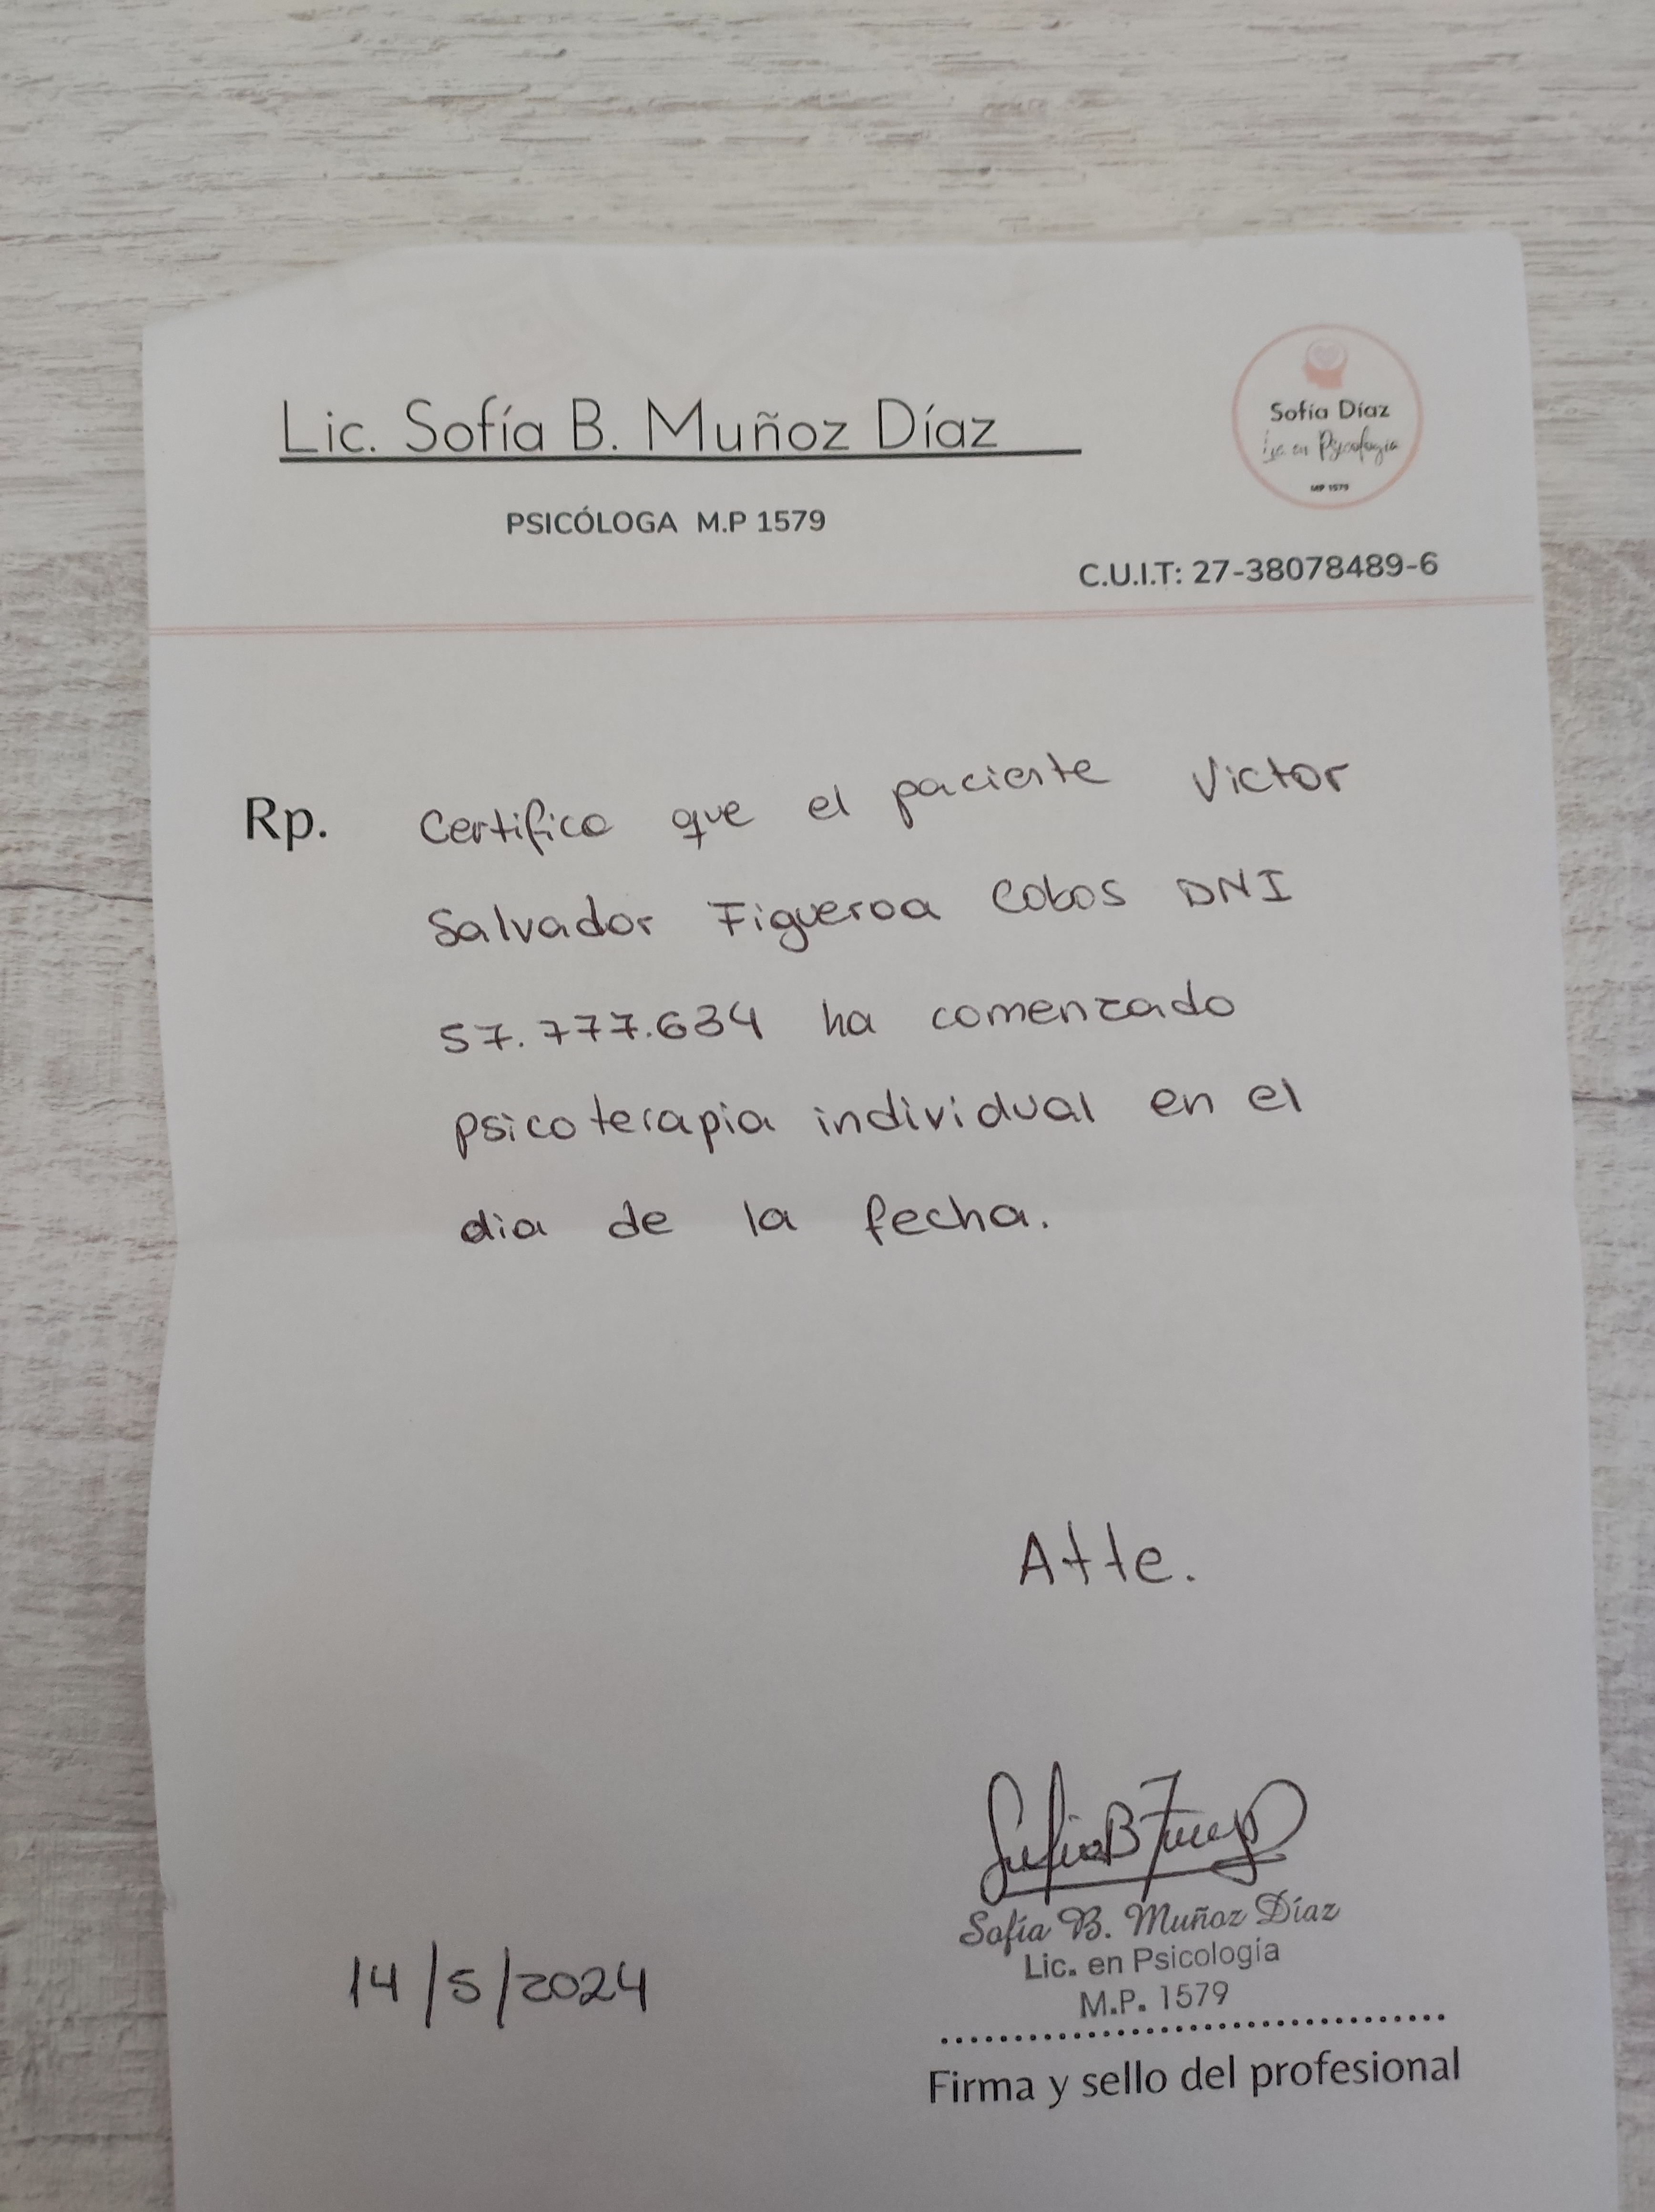 Lic. Sofía B. Muñoz Díaz
Sofía Díaz
Lic. en Psicología
MP 1579
PSICÓLOGA M.P 1579
C.U.I.T: 27-38078489-6
Rp. Certifico que el paciente Victor
Salvador Figueroa Cobos DNI
57.777.634 ha comenzado
psicoterapia individual en el
dia de la fecha.
Atte.
Sofía B. Muñoz Díaz
Lic. en Psicología
M.P. 1579
14/5/2024
Firma y sello del profesional